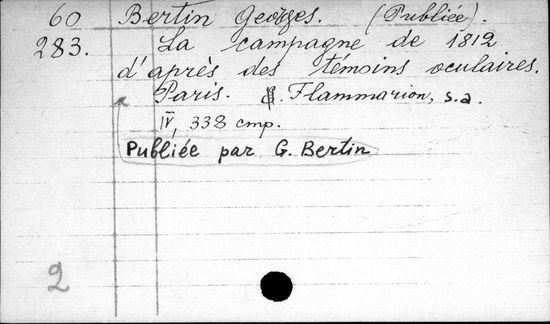 60 Bertin Georges. (Publiée).
283. La campagne de 1812
d'après des témoins oculaires.
Paris. Flammarion, s.a.
IV, 338 стр.
Publiée par G. Bertin
2